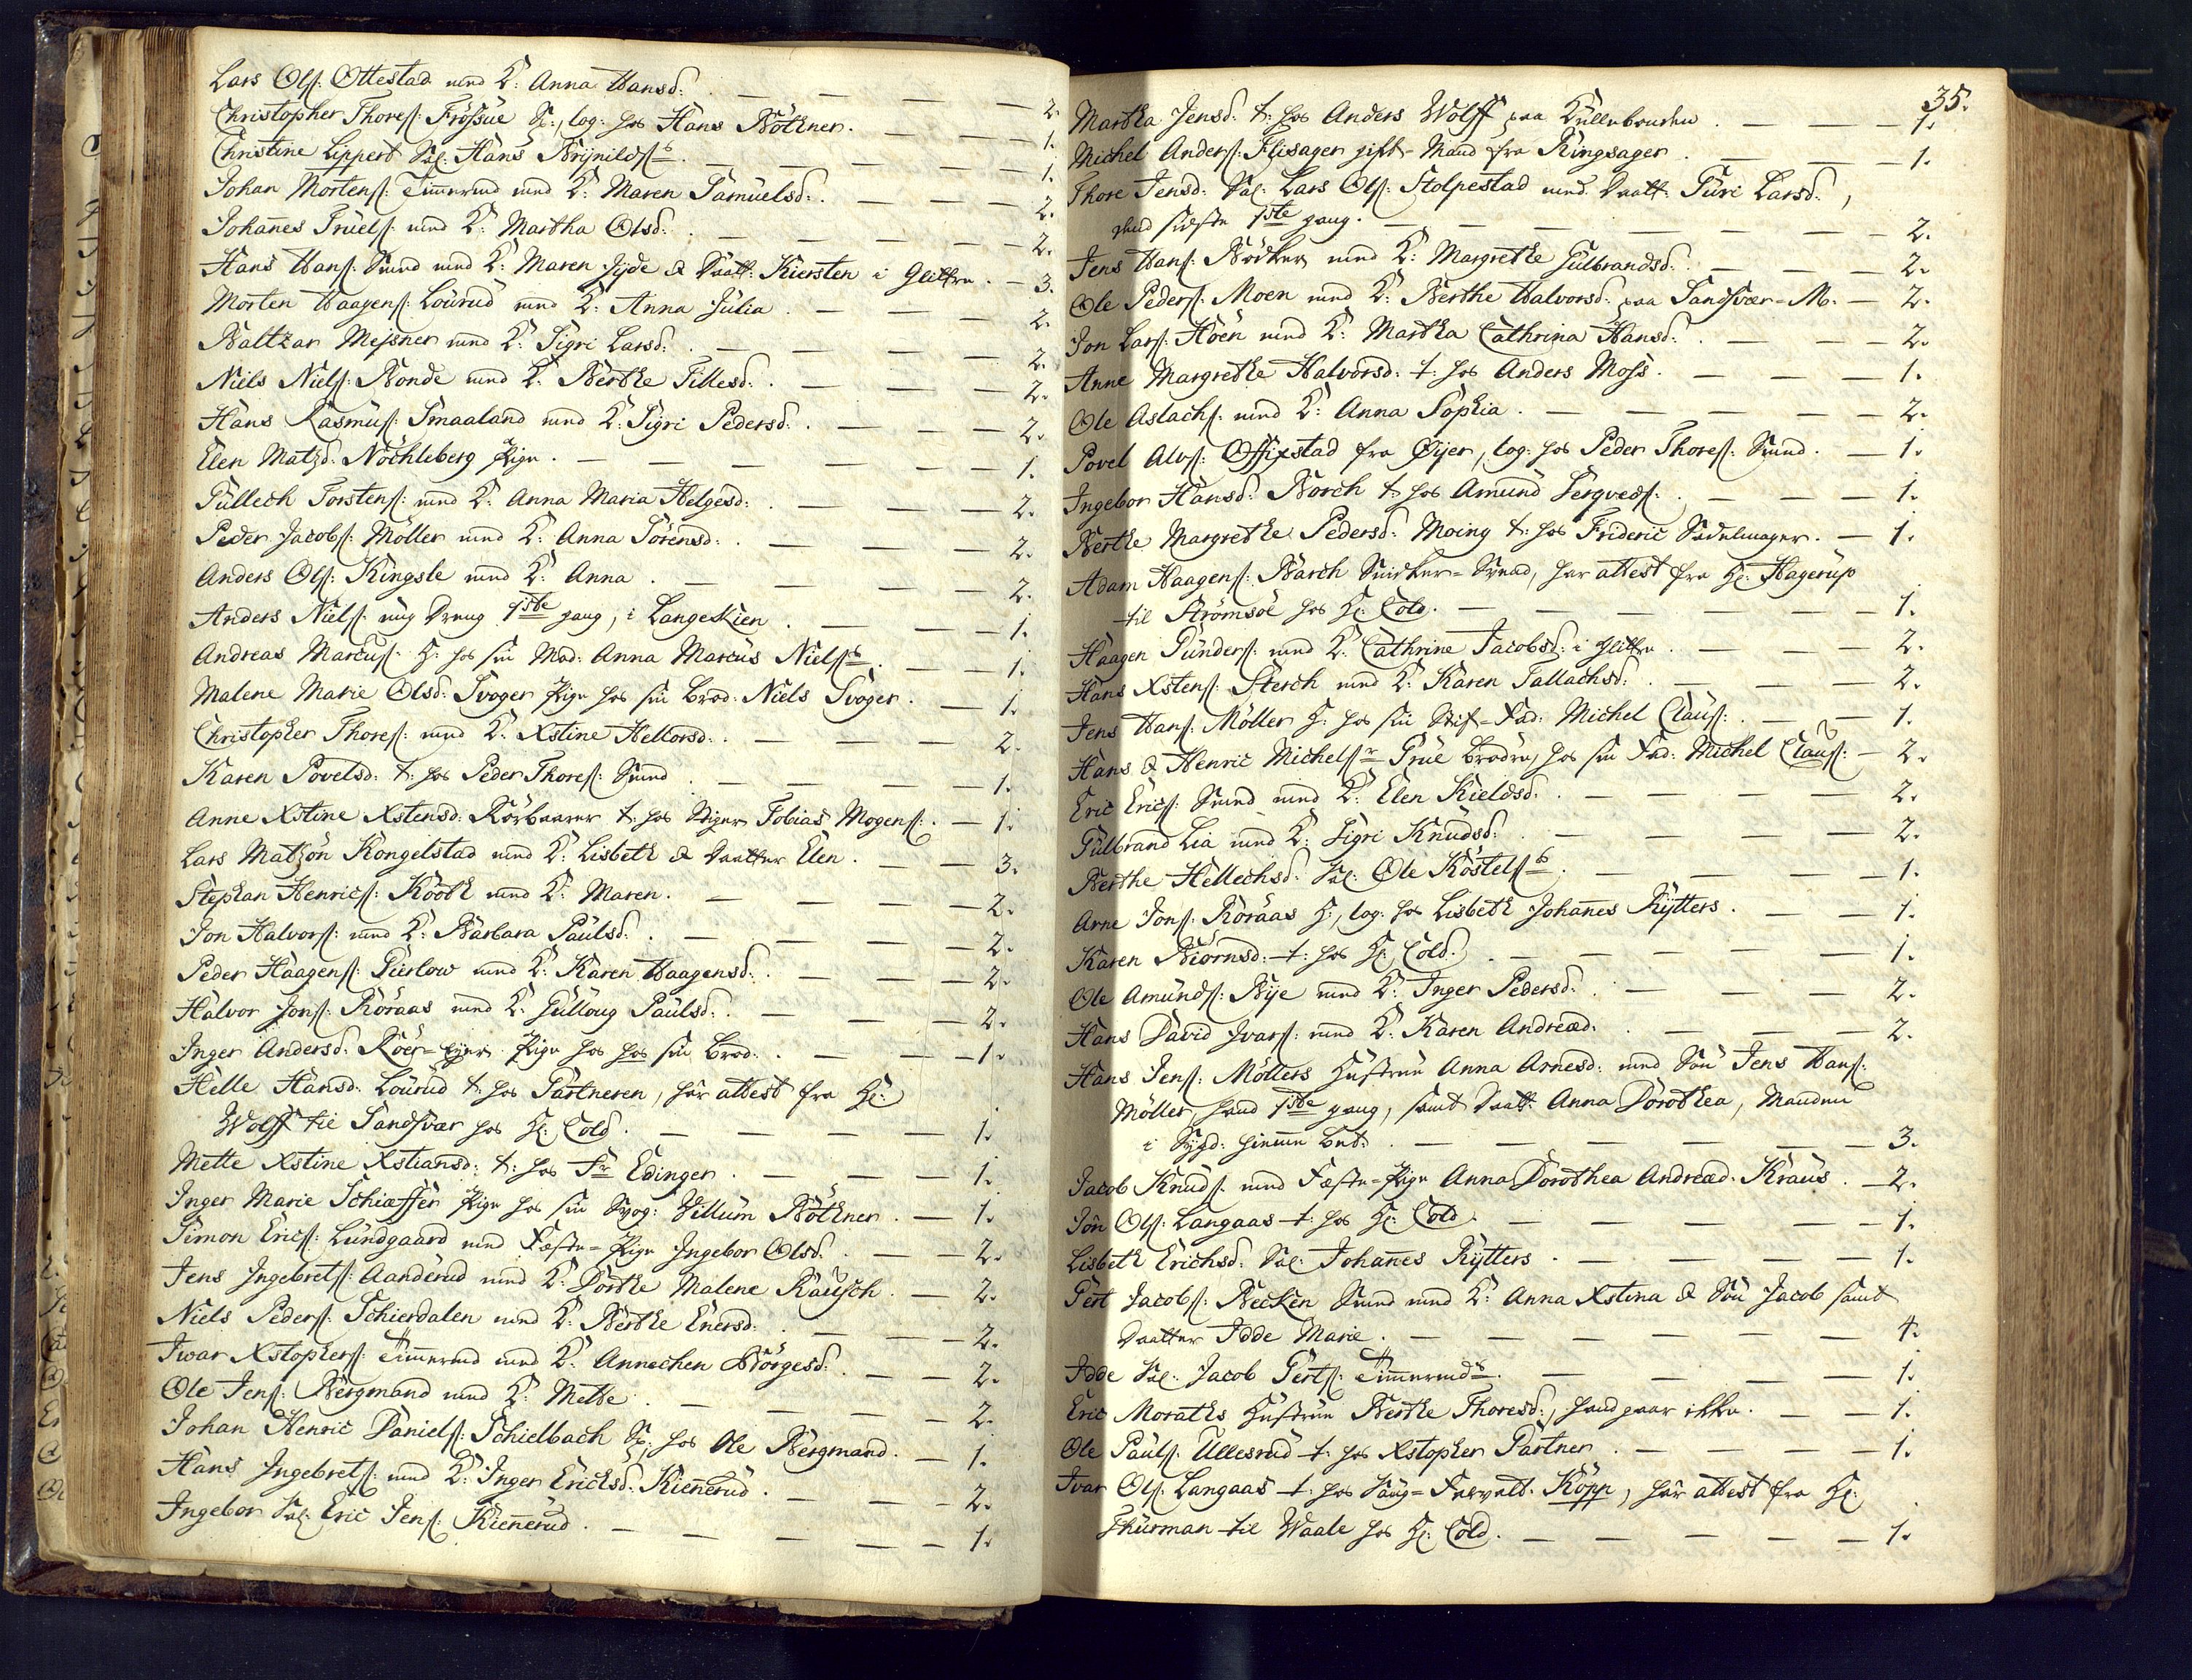 Lars Ols: Ottestad med K: Anna Hansd: — — — — 2.
Christopher Thores: Frössue S:, log: hos Hans Bötkner. — — — 1.
Christine Lippert Sal: Hans Brynilds — — — — 1.
Johan Mortens: Timermd med K: Maren Samuelsd: — — — 2.
Johañes Truels: med K: Martha Olsd: — — — — 2.
Hans Hans: Smed med K: Maren Jyde & Daatt: Kiersten i Glitten. — 3.
Morten Haagens: Lourud med K: Anna Julia. — — — 2.
Baltzar Mejsner med K: Sigri Larsd: — — — — 2.
Niels Niels: Bonde med K: Berthe Tillesd: — — — 2.
Hans Rasmus: Smaaland med K: Sigri Pedersd: — — — 2.
Elen Matzd: Nöchleberg Pige. — — — — — 1.
Gullech Torstens: med K: Anna Maria Helgesd: — — — 2.
Peder Jacobs: Möller med K: Anna Sörensd: — — — — 2.
Anders Ols: Kingsle med K: Anna. — — — — 2.
Anders Niels: ung Dreng 1ste gang, i LangeKien. — — — 1.
Andreas Marcus: G: hos sin Mod: Anna Marcus Niels — — 1.
Malene Marie Olsd: Svoger Pige hos sin Brod: Niels Svoger. — 1.
Christopher Thores: med K: Xstine Hellorsd: — — — 2.
Karen Povelsd: t: hos Peder Thores: Smed. — — — 1.
Anne Xstine Xstensd: Körbaarer t: hos Stiger Tobias Mogens: — 1.
Lars Matzön Kongelstad med K: Lisbeth & Daatter Elen. — — 3.
Stephan Henrics: Kooth med K: Maren. — — — — 2.
Jon Halvors: med K: Barbara Paulsd: — — — — 2.
Peder Haagens: Purlow med K: Karen Haagensd: — — — 2.
Halvor Jons: Röraas med K: Gulloug Paulsd: — — — 2.
Inger Andersd: Röer-Ejer Pige hos hos sin Brod: — — — 1.
Helle Hansd: Lourud t: hos Gartneren, har attest fra Hr:
Wolff til Sandsvær hos Hr: Cold. — — — — — 1.
Mette Xstine Xstiansd: t: hos Fr Edinger. — — — — 1.
Inger Marie Schiæffer Pige hos sin Svog: Villum Bötkner. — 1.
Simon Erics: Lundgaard med Fæste-Pige Ingebor Olsd: — — 2.
Jens Ingebrets: Aanderud med K: Dorthe Malene Rausch. — 2.
Niels Peders: Schierdalen med K: Berthe Enersd: — — — 2.
Iwar Xstophers: Timermd med K: Annechen Börgesd: — — 2.
Ole Jens: Bergmand med K: Mette. — — — — — 2.
Johan Henric Daniels: Schielbach S: hos Ole Bergmand. — 1.
Hans Ingebrets: med K: Inger Erichsd: Kieñerud. — — — 2.
Ingebor Sal: Eric Jens: Kieñerud. — — — — — 1.
35.
Martha Jensd: t: hos Anders Wolff paa Cullebonden. — — — 1.
Michel Anders: Flisager gift-Mand fra Ringsager. — — — 1.
Thore Jensd: Sal: Lars Ols: Stolpestad med Daatt: Guri Larsd:,
sidste 1ste gang. — — — — — — — 2.
Jens Hans: Bödker med K: Margrethe Gulbrandsd: — — — 2.
Ole Peders: Moen med K: Berthe Halvorsd: paa Sandsvær-M. — 2.
Jon Lars: Höen med K: Martha Cathrina Hansd: — — — 2.
Anne Margrethe Halvorsd: t: hos Anders Moss. — — — 1.
Ole Aslachs: med K: Anna Sophia. — — — — — 2.
Povel Alvs: Offigstad fra Øyer, log: hos Peder Thores: Smed. — 1.
Ingebor Hansd: Borch t: hos Amund Sergveds: — — — 1.
Berthe Margrethe Pedersd: Moing t: hos Frideric Sadelmager. — 1.
Adam Haagens: Barch Snidker-Svend, har attest fra Hr: Hagerup
til Strömsöe hos Hr: Cold. — — — — — — 1.
Haagen Gunders: med K: Cathrine Jacobsd: i Glitten — — — 2.
Hans Xstens: Sterch med K: Karen Tallachsd: — — — 2.
Jens Hans: Möller G: hos sin Stif-Fad: Michel Claus: — — 1.
Hans & Henric Michels Grüe Brödre, hos sin Fad: Michel Claus: — 2.
Eric Erics: Smed med K: Elen Kieldsd: — — — — 2.
Gulbrand Lia med K: Sigri Knudsd: — — — — 2.
Berthe Hellechsd: Sal: Ole Köstels — — — — 1.
Arne Jons: Röraas G:, log: hos Lisbeth Johañes Rytters. — — 1.
Karen Biörnsd: t: hos Hr: Cold. — — — — — 1.
Ole Amunds: Bye med K: Inger Pedersd: — — — 2.
Hans David Ivars: med K: Karen Andreæd: — — — 2.
Hans Jens: Möllers Hustrue Anna Arnesd: med Sön Jens Hans:
Möller, hand 1ste gang, samt Daatt: Anna Dorothea, Manden
i Sygd: hiemme bet: — — — — — — — 3.
Jacob Knuds: med Fæste-Pige Anna Dorothea Andreæd. Kraus. — 2.
Jon Ols: Langaas t: hos Hr: Cold. — — — — — 1.
Lisbeth Erichsd: Sal: Johañes Rytters. — — — — 1.
Gert Jacobs: Becken Smed med K: Anna Xstina & Sön Jacob samt
Daatter Idde Marie. — — — — — — — 4.
Idde Sal: Jacob Gerts: Timermds. — — — — 1.
Eric Moraths Hustrue Berthe Thoresd:, hand gaar ikke. — — 1.
Ole Pauls: Ullesrud t: hos Xstopher Gartner. — — — — 1.
Ivar Ols: Langaas t: hos Saug-Forvalt. Köpp, har attest fra Hr:
Thurman til Waale hos Hr: Cold. — — — — — 1.